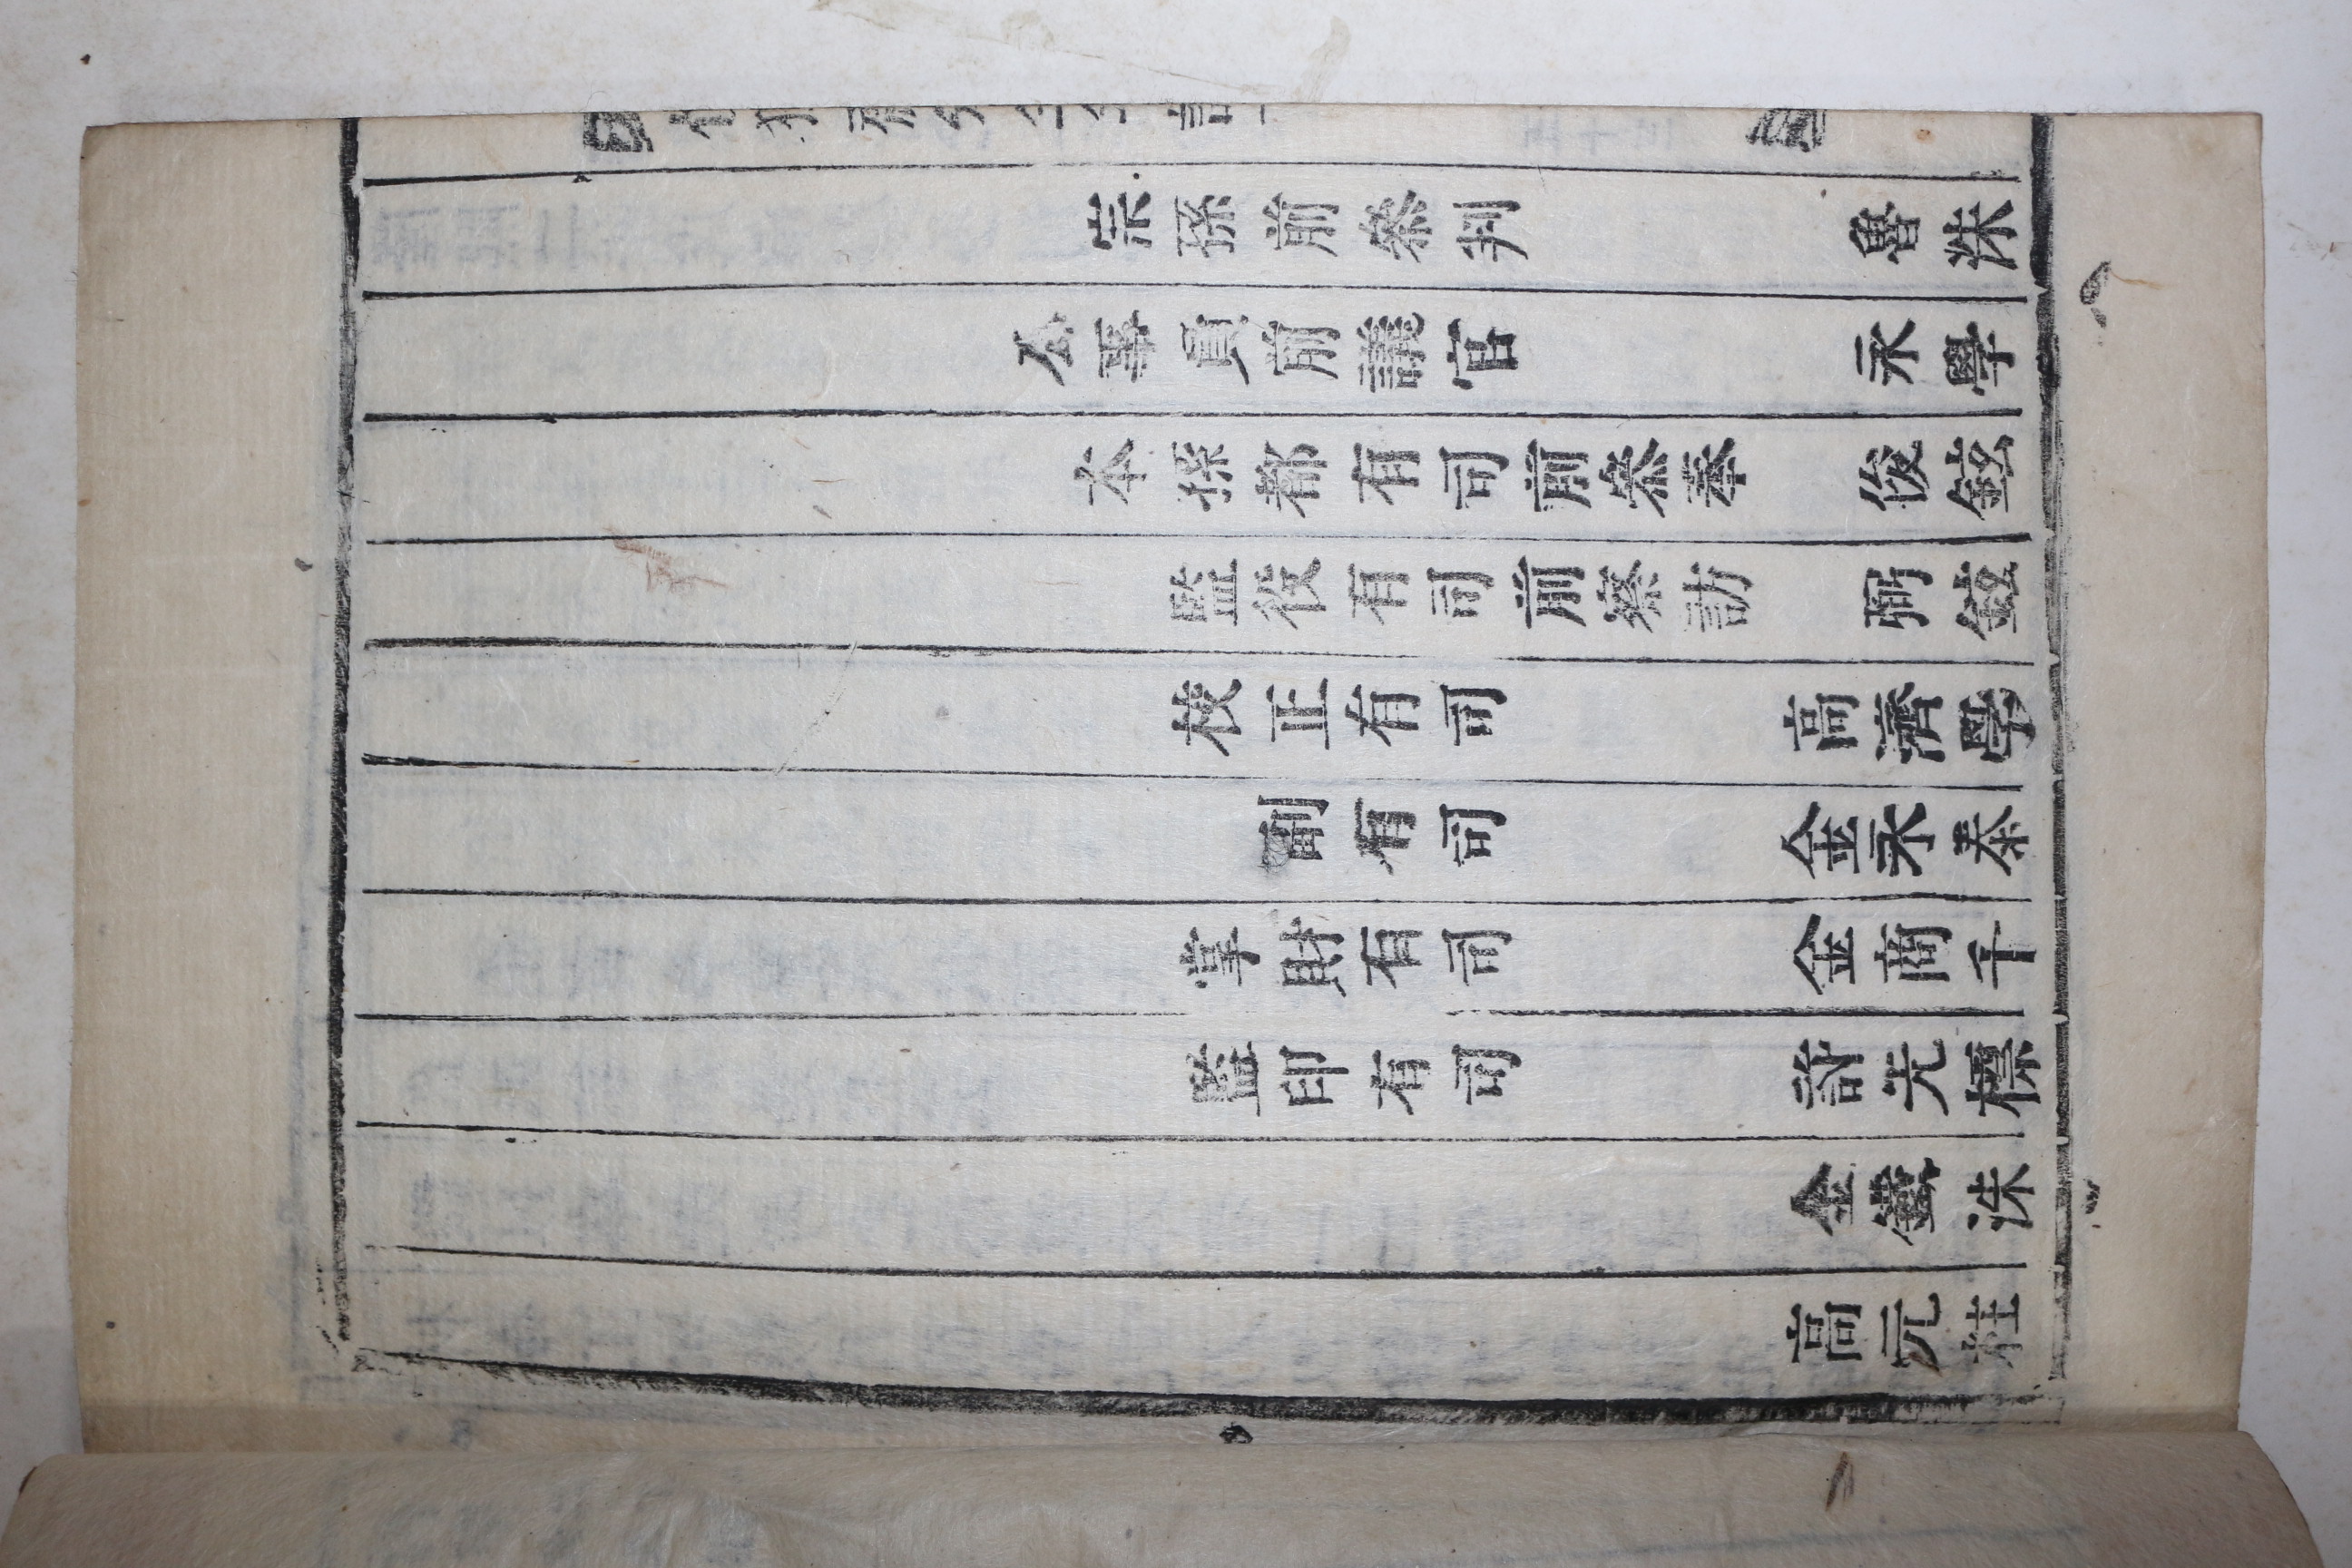 宗孫前叅判 魯洙
公事員前議官 永學
本孫都有司前叅奉 俊鉉
監役有司前察訪 弼鉉
校正有司 高濟學
副有司 金永泰
掌財有司 金商千
監印有司 許光標
金 洙
高元柱